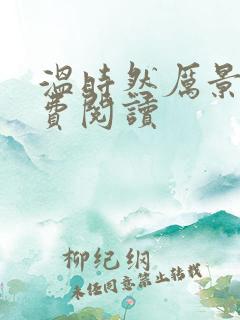 温时然厉景
费阅读
柳纪纲
未经同意禁止转载